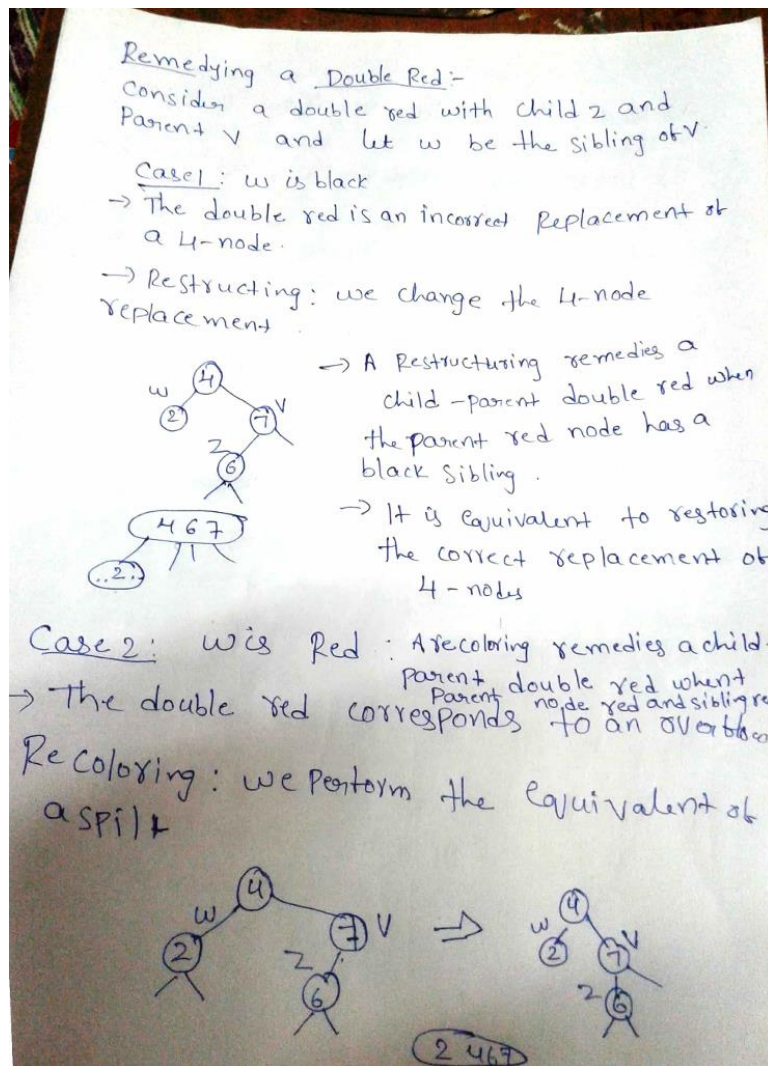 Remedying a Double Red :-
Consider a double red with child z and
Parent V and let w be the sibling of V.
Case 1 : w is black
→ The double red is an incorrect Replacement of
a 4-node.
→ Restructing : we change the 4-node
replacement
→ A Restructuring remedies a
child - parent double red when
the parent red node has a
black sibling .
→ It is equivalent to restoring
the correct replacement of
4 - nodes
4
w
2
7
V
z
6
4 6 7
..2..
Case 2 : w is Red : A recoloring remedies a child-
parent double red when t
Parent node red and sibling re
→ The double red corresponds to an
Recoloring : we perform the equivalent of
a spilt
4
w
2
7
V
z
6
⇒
4
w
2
7
V
z
6
2 4 6 7